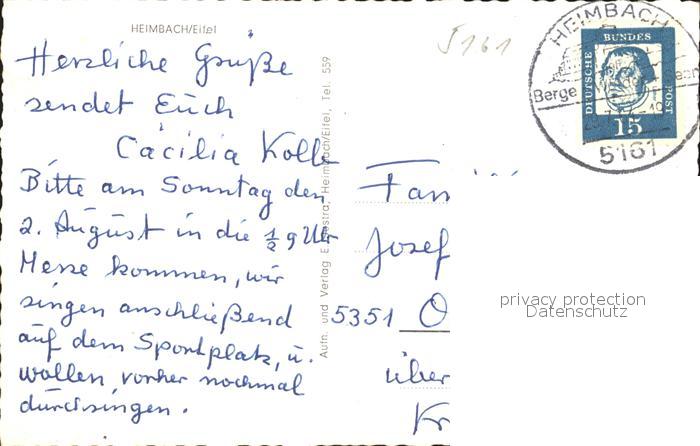 HEIMBACH/Eifel
5161
Herzliche Grüße
sendet Euch
Cäcilia Kolb
Bitte am Sonntag den
2. August in die ½ 9 Uhr
Messe kommen, wir
singen anschließend
auf dem Sportplatz, u.
wollen vorher nochmal
durchsingen.
Aufn. und Verlag Heimbach/Eifel, Tel. 559
Fam
Josef
5351 O
über
Kr
HEIMBACH
Berge
5161
DEUTSCHE
BUNDES
POST
15
privacy protection
Datenschutz